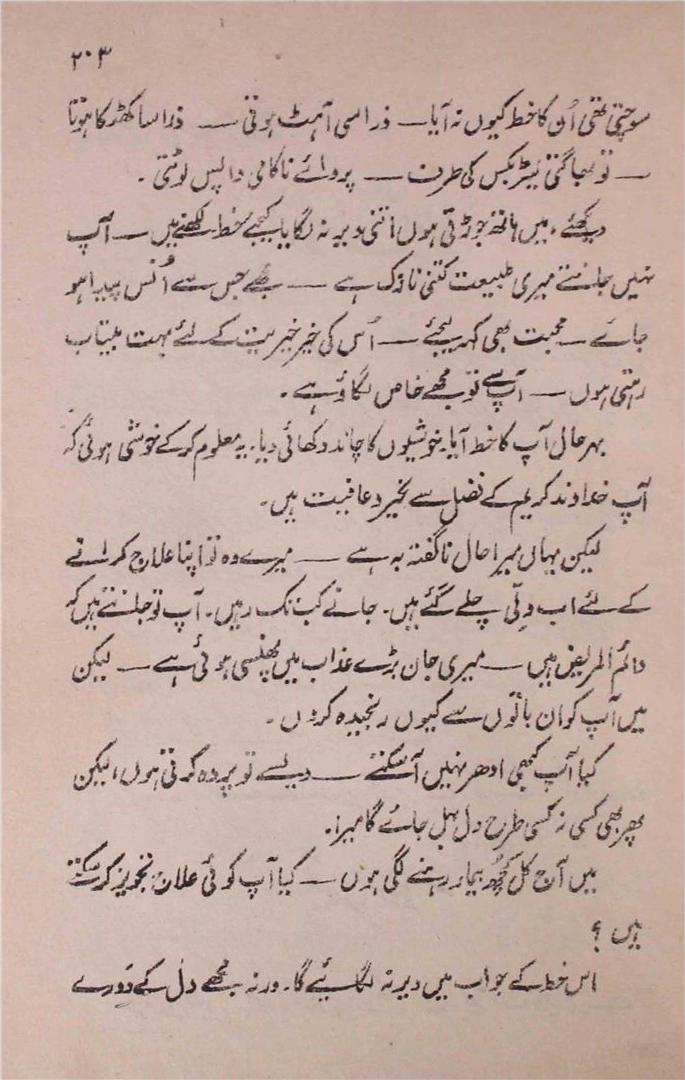 ۲۰۳
سوچتی تھی اُن کا خط کیوں نہ آیا — ذرا سی آہٹ ہوتی — ذرا سا کھڑکا ہوتا
— تو بھاگتی لیٹر بکس کی طرف — پر وائے ناکامی واپس لوٹتی ۔
دیکھئے، میں ہاتھ جوڑتی ہوں اتنی دیر نہ لگایا کیجئے خط لکھنے میں — آپ
نہیں جانتے میری طبیعت کتنی نازک ہے — مجھے جس سے اُنس پیدا ہو
جائے — محبت بھی کہہ لیجئے — اُس کی خیر خیریت کے لئے بہت بیتاب
رہتی ہوں — آپ سے تو مجھے خاص لگاؤ ہے ۔
بہر حال آپ کا خط آیا۔ خوشیوں کا چاند دکھائی دیا۔ یہ معلوم کر کے خوشی ہوئی کہ
آپ خداوند کریم کے فضل سے بخیر و عافیت ہیں۔
لیکن یہاں میرا حال ناگفتہ بہ ہے — میرے وہ تو اپنا علاج کرانے
کے لئے اب دِلّی چلے گئے ہیں۔ جانے کب تک رہیں۔ آپ تو جانتے ہیں کہ
دائم المریض ہیں — میری جان بڑے عذاب میں پھنسی ہوئی ہے — لیکن
میں آپ کو ان باتوں سے کیوں رنجیدہ کروں ۔
کیا آپ کبھی ادھر نہیں آسکتے — ویسے تو پردہ کرتی ہوں، لیکن
پھر بھی کسی نہ کسی طرح دل بہل جائے گا میرا۔
میں آج کل کچھ بیمار رہنے لگی ہوں — کیا آپ کوئی علاج تجویز کر سکتے
ہیں ؟
اس خط کے جواب میں دیر نہ لگائیے گا۔ ورنہ مجھے دل کے دورے